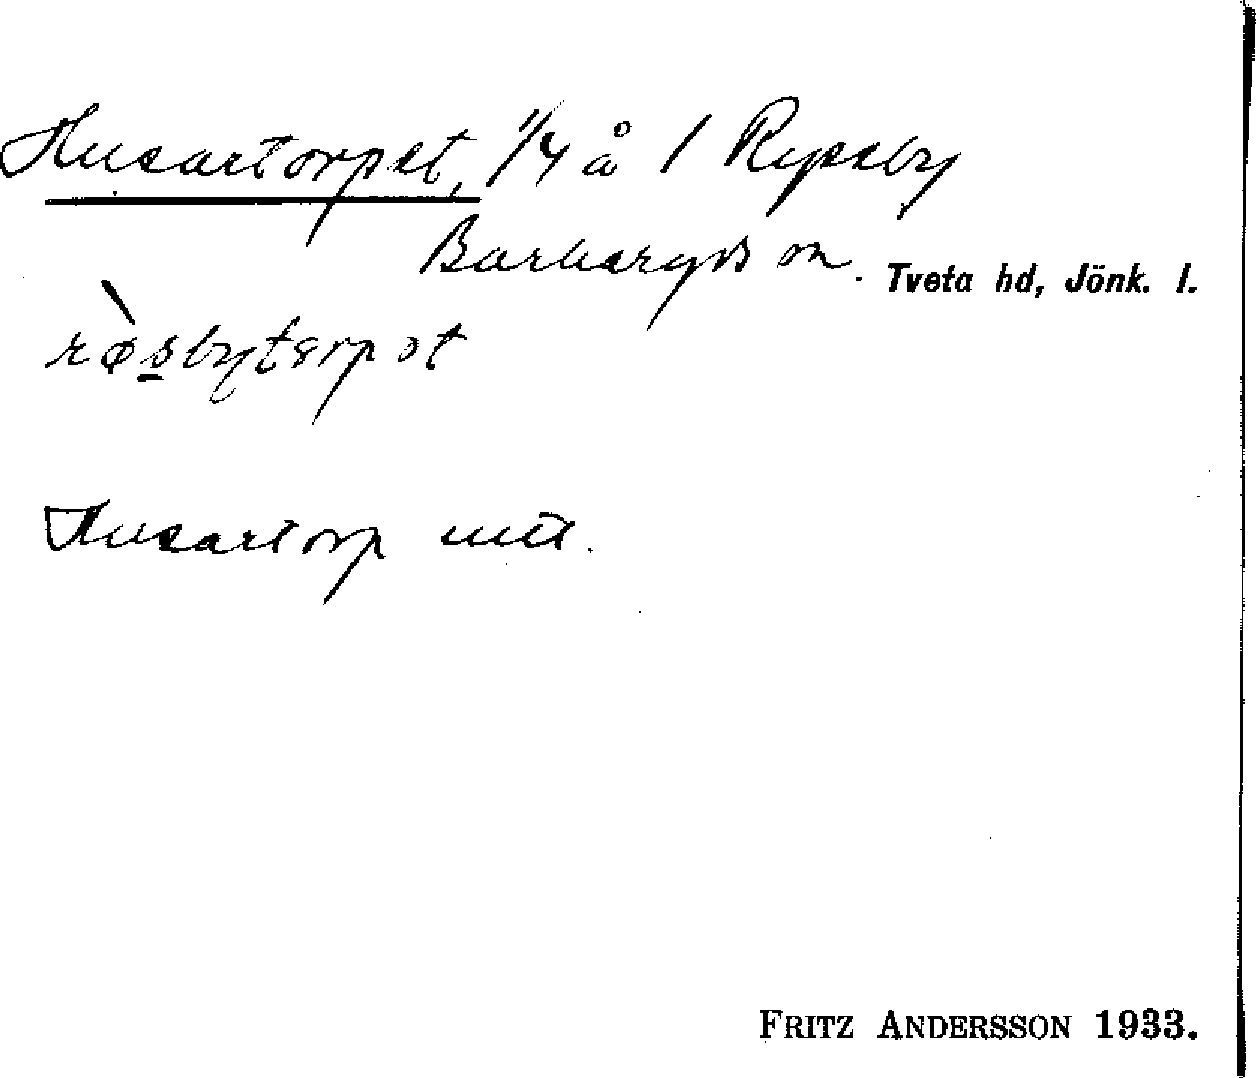 Husartorpet, 1/4 å 1 Ryssby
Barkeryds sn. Tveta hd, Jönk. l.
røsbytørpət
Husartorp uttl.
FRITZ ANDERSSON 1933.